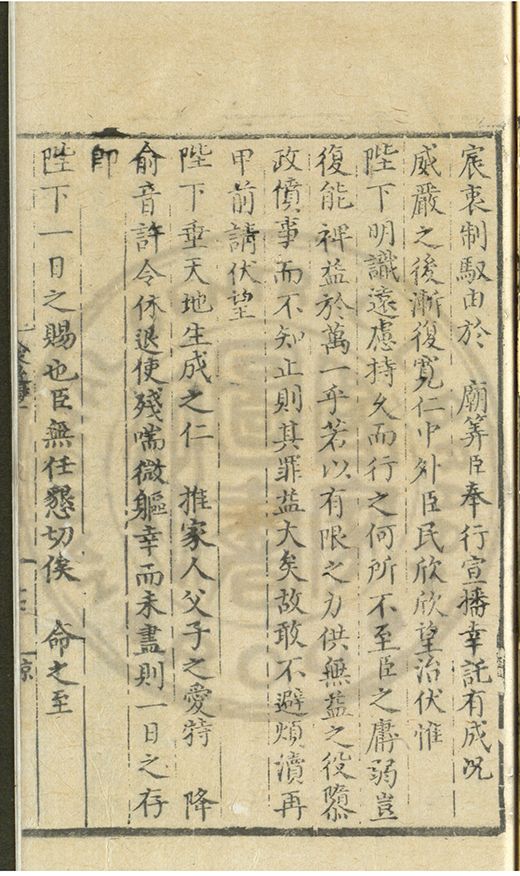 宸衷制馭由於 廟筭臣奉行宣播幸託有成况
威嚴之後漸復寬仁中外臣民欣欣望治伏惟
陛下明識遠慮持久而行之何所不至臣之孱弱豈
復能裨益於萬一乎若以有限之力供無益之役隳
政僨事而不知止則其罪益大矣故敢不避煩瀆再
甲前請伏望
陛下垂天地生成之仁 推家人父子之愛特 降
俞音許令休退使殘喘微軀幸而未盡則一日之存
即
陛下一日之賜也臣無任懇切俟 命之至